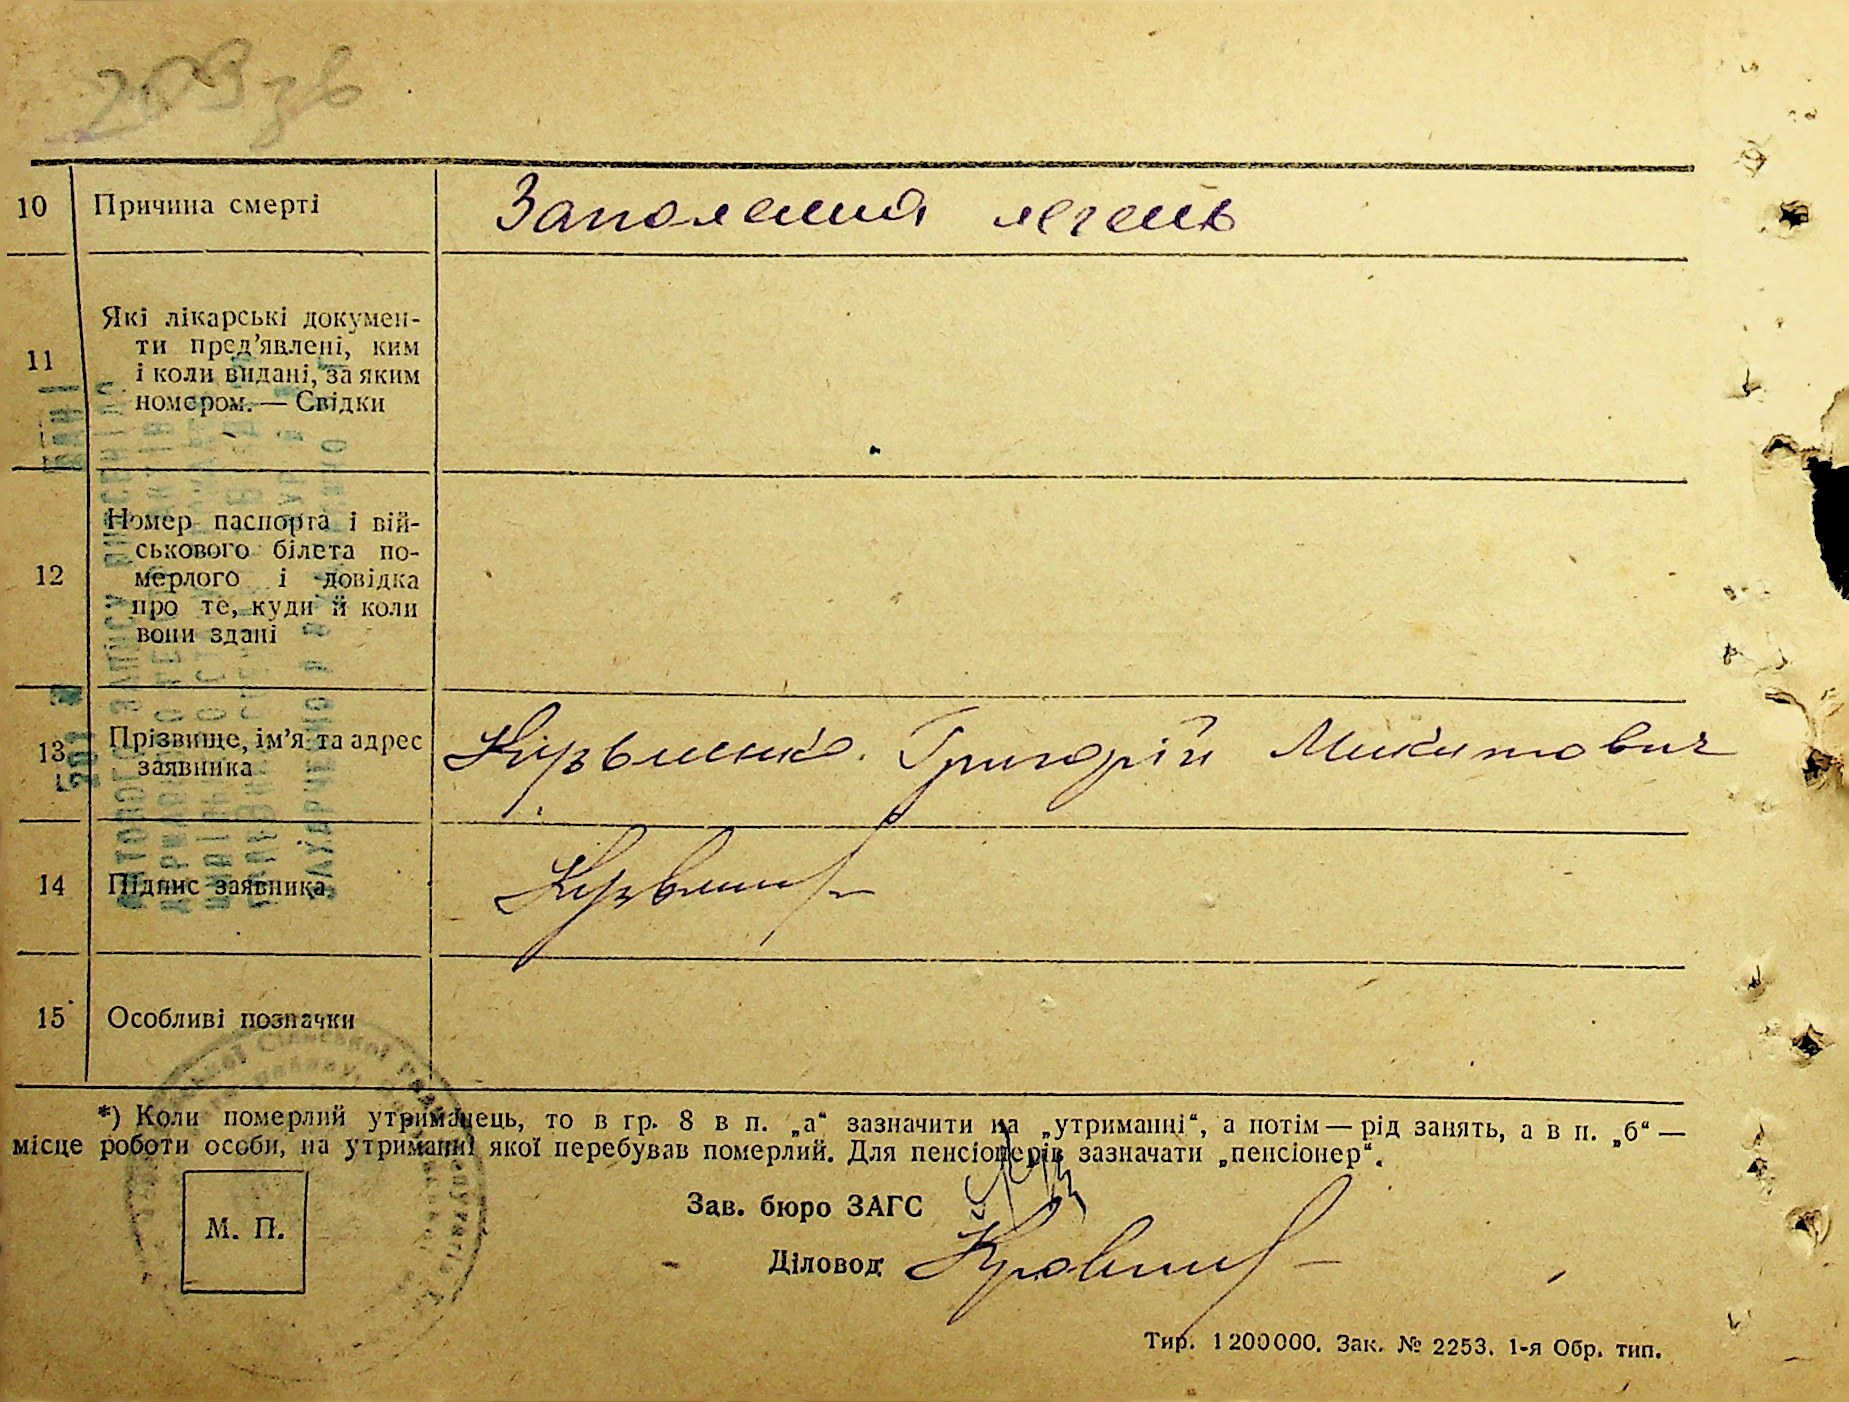 209 зв
10 Причина смерті Запалення легень
11 Які лікарські докумен-
ти пред'явлені, ким
і коли видані, за яким
номером. — Свідки
12 Номер паспорта і вій-
ськового білета по-
мерлого і довідка
про те, куди й коли
вони здані
13 Прізвище, ім'я та адрес
заявника
Кузьменко Григорій Микитович
14 Підпис заявника
15 Особливі позначки
*) Коли померлий утриманець, то в гр. 8 в п. „а“ зазначити на „утриманні“, а потім — рід занять, а в п. „б“ —
місце роботи особи, на утриманні якої перебував померлий. Для пенсіонерів зазначати „пенсіонер“.
М. П.
Зав. бюро ЗАГС
Діловод
Тир. 1200000. Зак. № 2253. 1-я Обр. тип.